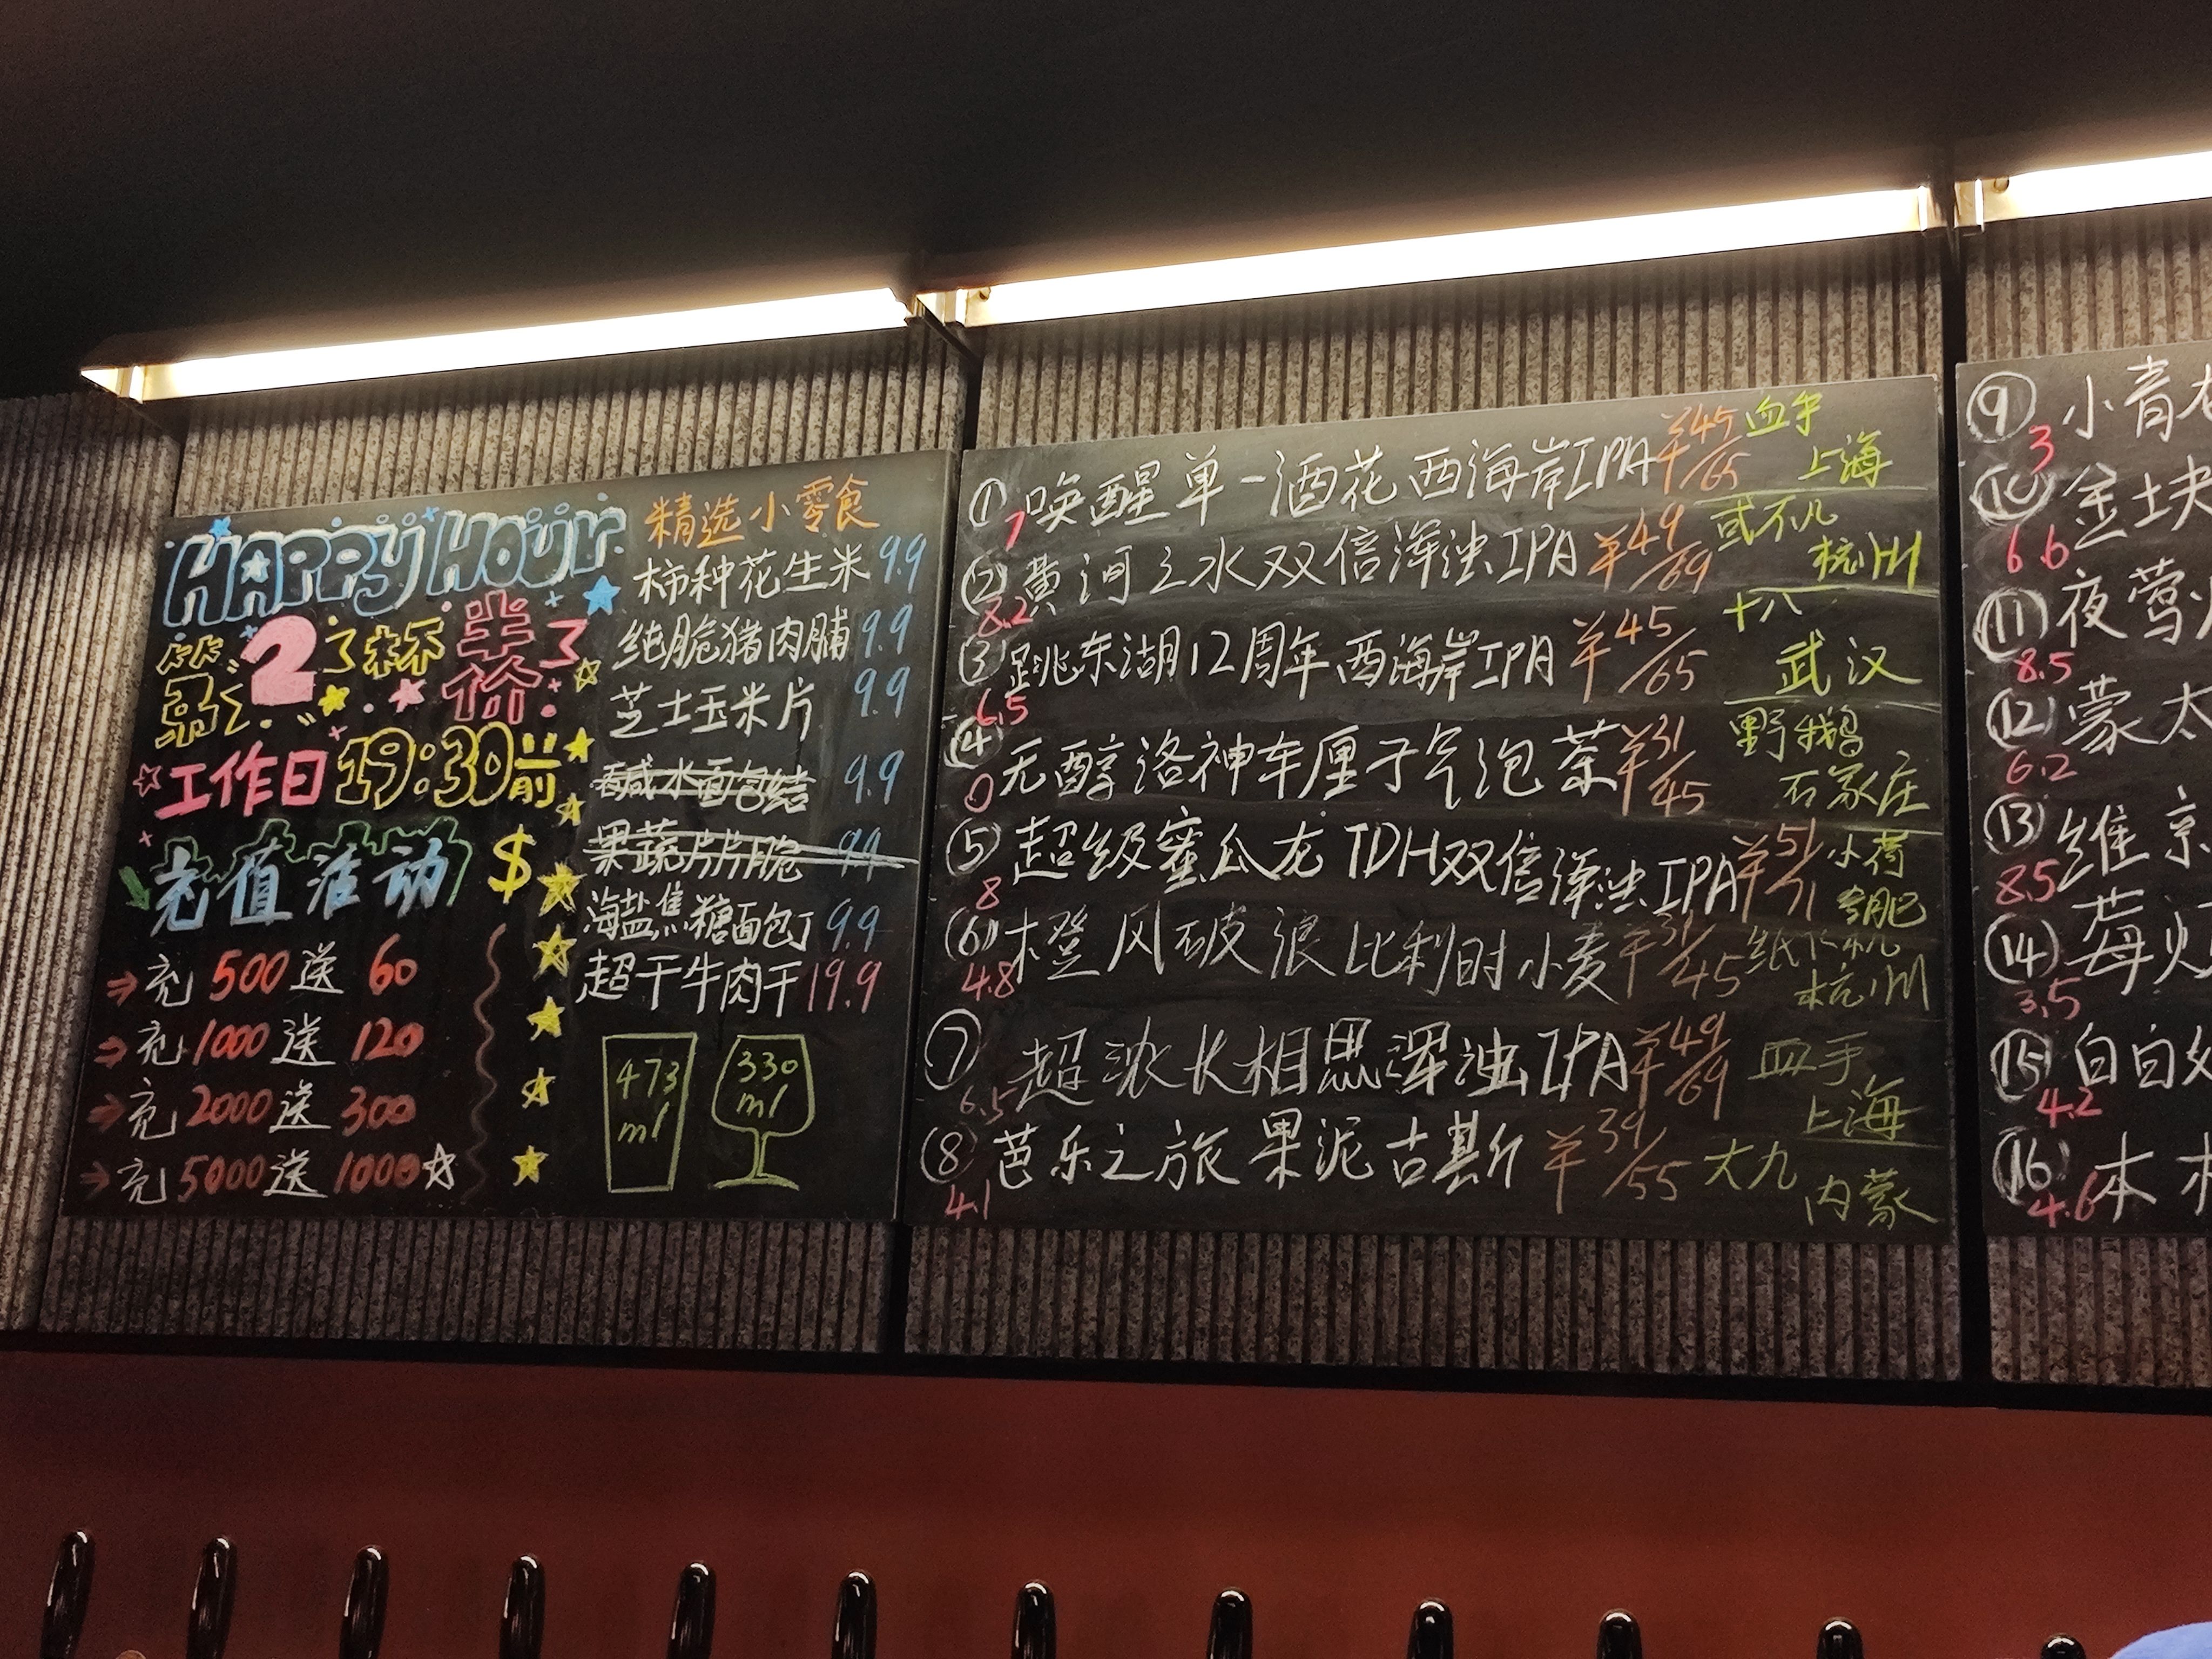 HAPPY HOUR
第2杯半价
工作日19:30前
充值活动 $
充500送60
充1000送120
充2000送300
充5000送1000
精选小零食
柿种花生米 9.9
纯脆猪肉脯 9.9
芝士玉米片 9.9
碱水面包结 9.9
果蔬片片脆 9.9
海盐焦糖面包丁 9.9
超干牛肉干 19.9
473 ml
330 ml
① 唤醒单一酒花西海岸IPA ¥45/65 血手
7 上海
② 黄河之水双倍浑浊IPA ¥49/69 或不凡
8.2 杭州
③ 跳东湖12周年西海岸IPA ¥45/65 十八
6.5 武汉
④ 无醇洛神车厘子气泡茶 ¥31/45 野鹅
0 石家庄
⑤ 超级蜜瓜龙TDH双倍浑浊IPA ¥51/71 小荷
8 合肥
⑥ 橙风破浪比利时小麦 ¥31/45 纸飞机
4.8 杭州
⑦ 超浓长相思浑浊IPA ¥49/69 血手
6.5 上海
⑧ 芭乐之旅果泥古斯 ¥39/55 大九
4.1 内蒙
⑨ 小青
3
⑩ 金块
6.6
⑪ 夜莺
8.5
⑫ 蒙太
6.2
⑬ 维京
8.5
⑭ 莓
3.5
⑮ 白白
4.2
⑯ 本
4.6